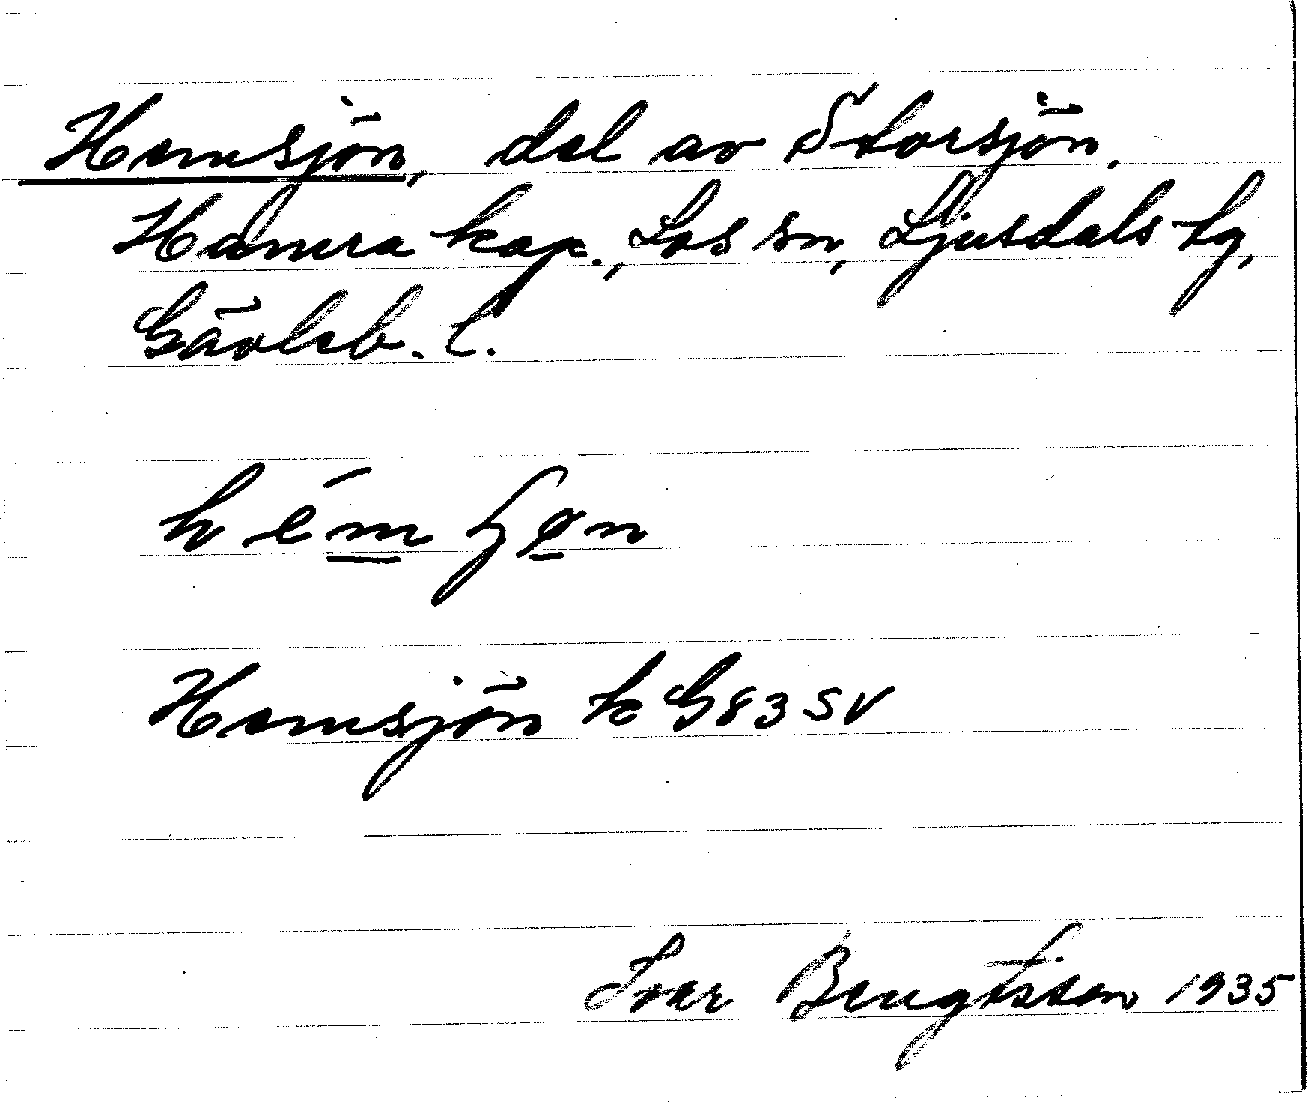 Hemsjön, del av Storsjön.
Hamra kap., Los sn, Ljusdals tg,
Gävleb. l.
Hemsjön k G83 SV
Ivar Bengtsson 1935